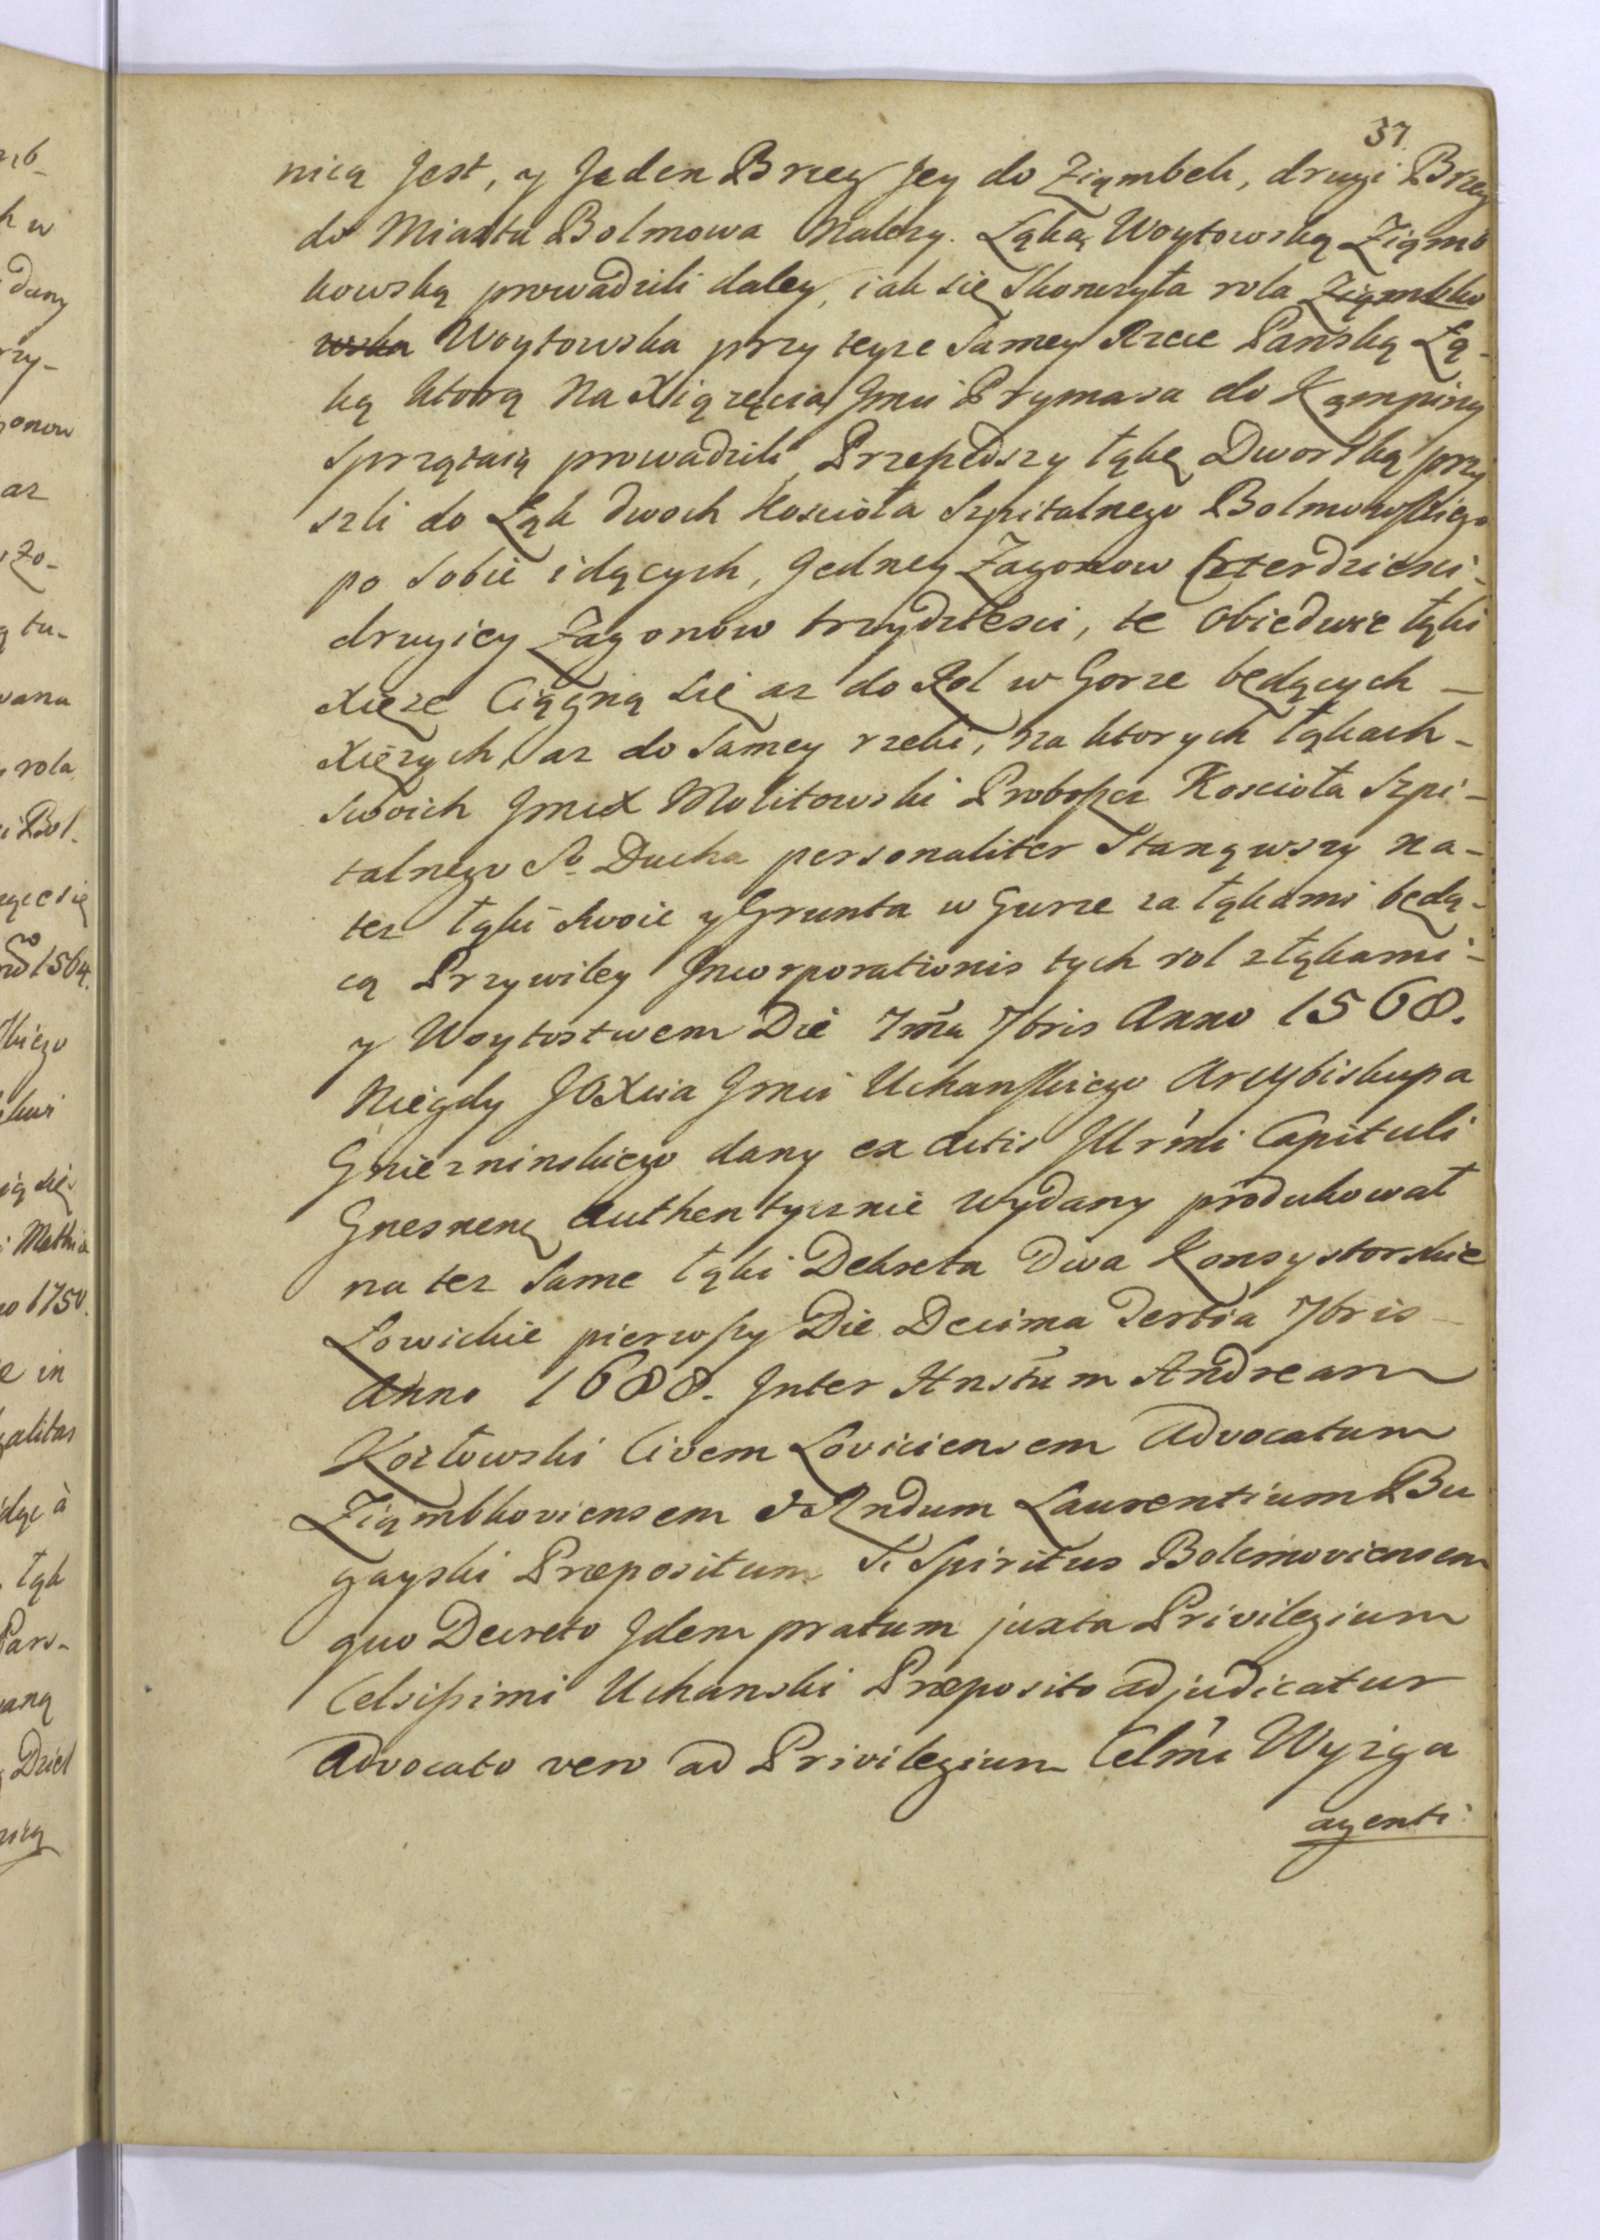 37
nicą Jest, y Jeden Brzeg Jey do Ziąmbek, drugi Brzeg
do Miasta Bolmowa Należy. Łąką Woytowską Ziąmb
kowską prowadzili daley, iak się Skonczyła rola Ziąmbko
wska Woytowska przy teyze Samey Rzece Panską Łą-
ką ktorą Na Xiązęcia Jmci Prymasa do Kąmpiny
Sprzątaią prowadzili, Przeszedszy łąkę Dworską przy
szli do Łąk dwoch Koscioła Szpitalnego Bolmowskiego
po Sobie idących, Jedney Zagonow Czterdziesci
drugiey Zagonow trzydziesci, te Obiedwie łąki
Xięże Ciągną Się az do Rol w Gorze będących -
Xięzych, az do Samey rzeki, na ktorych łąkach -
Swoich JmcX Molitowski Proboszcz Koscioła Szpi-
talnego So Ducha personaliter Stanąwszy na-
tez łąki Swoie y Grunta w Gurze za łąkami będą-
cą Przywiley Incorporationis tych rol z łąkami -
y Woytostwem Die 7ma 7bris Anno 1568.
Niegdy JOXcia Jmci Uchanskiego Arcybiskupa
Gniezninskiego dany ex actis Jllrmi Capituli
Gnesnens Authentycznie wydany produkował
na tez Same łąki Dekreta Dwa Konsystorskie
Łowickie pierwszy Die Decima Tertia 7bris -
Anno 1688. Inter Hnstum Andream
Kozłowski Civem Loviciensem Advocatum
Ziąmbkoviensem & Rndum Laurentium Bu
gayski Præpositum S. Spiritus Bolemoviensem
quo Decreto Idem pratum juxta Privilegium
Celsissimi Uchanski Præposito adjudicatur
Advocato vero ad Privilegium Celmi Wyzga
agenti